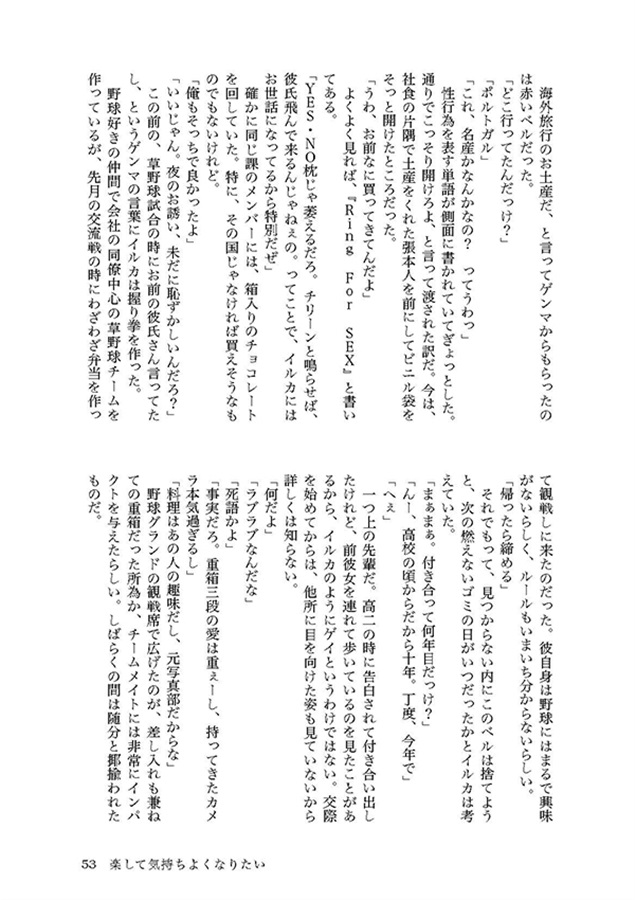 海外旅行のお土産だ、と言ってゲンマからもらったの
は赤いベルだった。
「どこ行ってたんだっけ？」
「ポルトガル」
「これ、名産かなんかなの？　ってうわっ」
　性行為を表す単語が側面に書かれていてぎょっとした。
通りでこっそり開けろよ、と言って渡された訳だ。今は、
社食の片隅で土産をくれた張本人を前にしてビニル袋を
そっと開けたところだった。
「うわ、お前なに買ってきてんだよ」
　よくよく見れば、『Ring For SEX』と書い
てある。
「YES・NO枕じゃ萎えるだろ。チリーンと鳴らせば、
彼氏飛んで来るんじゃねぇの。ってことで、イルカには
お世話になってるから特別だぜ」
　確かに同じ課のメンバーには、箱入りのチョコレート
を回していた。特に、その国じゃなければ買えそうなも
のでもないけれど。
「俺もそっちで良かったよ」
「いいじゃん。夜のお誘い、未だに恥ずかしいんだろ？」
　この前の、草野球試合の時にお前の彼氏さん言ってた
し、というゲンマの言葉にイルカは握り拳を作った。
　野球好きの仲間で会社の同僚中心の草野球チームを
作っているが、先月の交流戦の時にわざわざ弁当を作っ
て観戦しに来たのだった。彼自身は野球にはまるで興味
がないらしく、ルールもいまいち分からないらしい。
「帰ったら締める」
　それでもって、見つからない内にこのベルは捨てよう
と、次の燃えないゴミの日がいつだったかとイルカは考
えていた。
「まぁまぁ。付き合って何年目だっけ？」
「んー、高校の頃からだから十年。丁度、今年で」
「へぇ」
　一つ上の先輩だ。高二の時に告白されて付き合い出し
たけれど、前彼女を連れて歩いているのを見たことがあ
るから、イルカのようにゲイというわけではない。交際
を始めてからは、他所に目を向けた姿も見ていないから
詳しくは知らない。
「何だよ」
「ラブラブなんだな」
「死語かよ」
「事実だろ。重箱三段の愛は重ぇーし、持ってきたカメ
ラ本気過ぎるし」
「料理はあの人の趣味だし、元写真部だからな」
　野球グランドの観戦席で広げたのが、差し入れも兼ね
ての重箱だった所為か、チームメイトには非常にインパ
クトを与えたらしい。しばらくの間は随分と揶揄われた
ものだ。
53　楽して気持ちよくなりたい